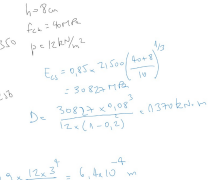 h=8cm
fck=40MPa
350
p=12kN/m²
Ecs=0,85×21500(40+8/10)^1/3
=30827MPa
D= 30827×0,08³/12×(1-0,2²) = 1370kN.m
12×3⁴ = 6,4×10⁻⁴ m